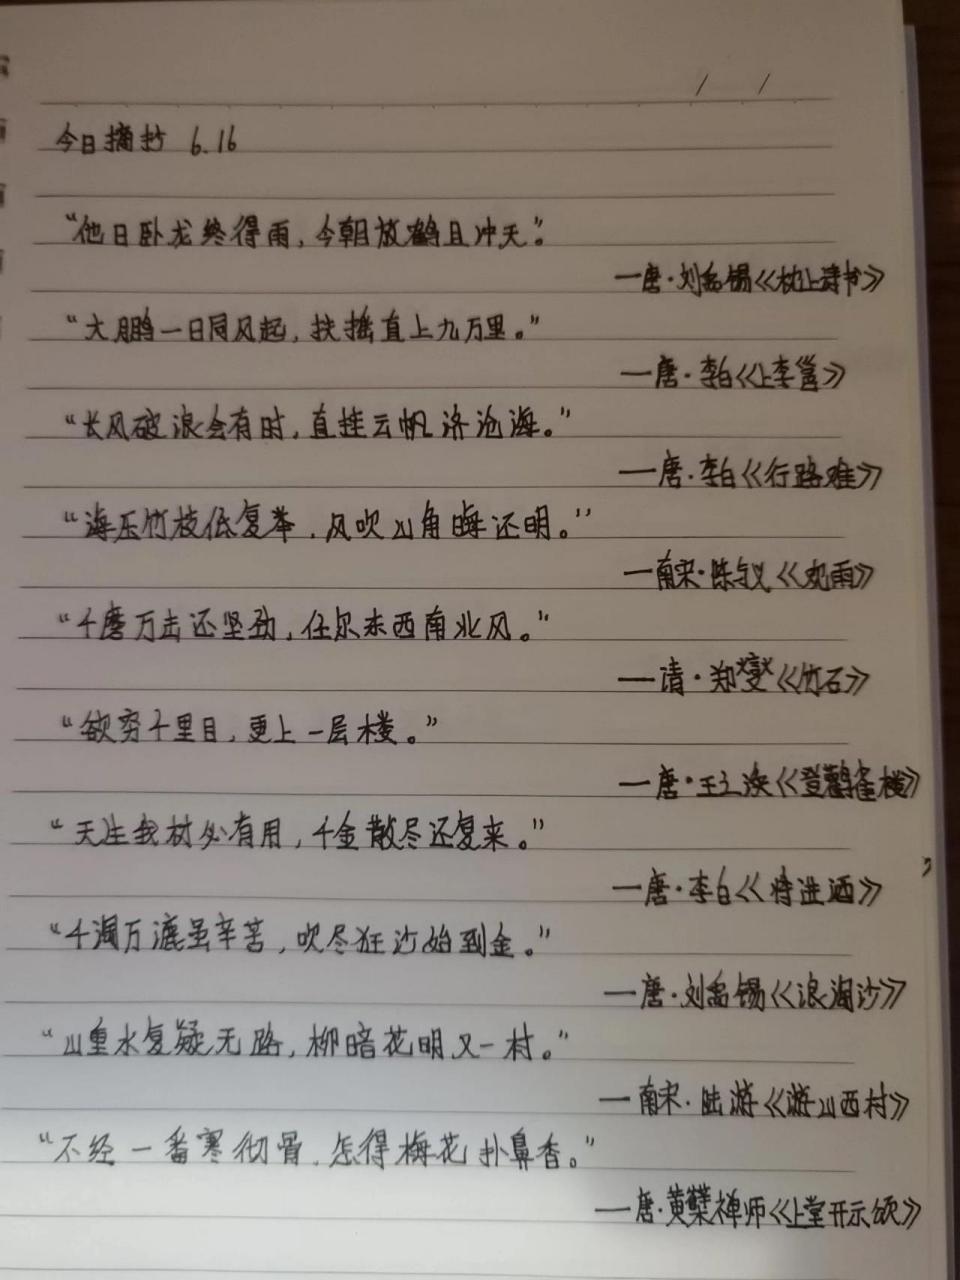 今日摘抄 6.16
“他日卧龙终得雨，今朝放鹤且冲天”。
—唐·刘禹锡《枕上诗书》
“大鹏一日同风起，扶摇直上九万里。”
—唐·李白《上李邕》
“长风破浪会有时，直挂云帆济沧海。”
—唐·李白《行路难》
“海压竹枝低复举，风吹山角晦还明。”
—南宋·陈与义《观雨》
“千磨万击还坚劲，任尔东西南北风。”
—请·郑燮《竹石》
“欲穷千里目，更上一层楼。”
—唐·王之涣《登鹳雀楼》
“天生我材必有用，千金散尽还复来。”
—唐·李白《将进酒》
“千淘万漉虽辛苦，吹尽狂沙始到金。”
—唐·刘禹锡《浪淘沙》
“山重水复疑无路，柳暗花明又一村。”
—南宋·陆游《游山西村》
“不经一番寒彻骨，怎得梅花扑鼻香。”
—唐·黄檗禅师《上堂开示颂》